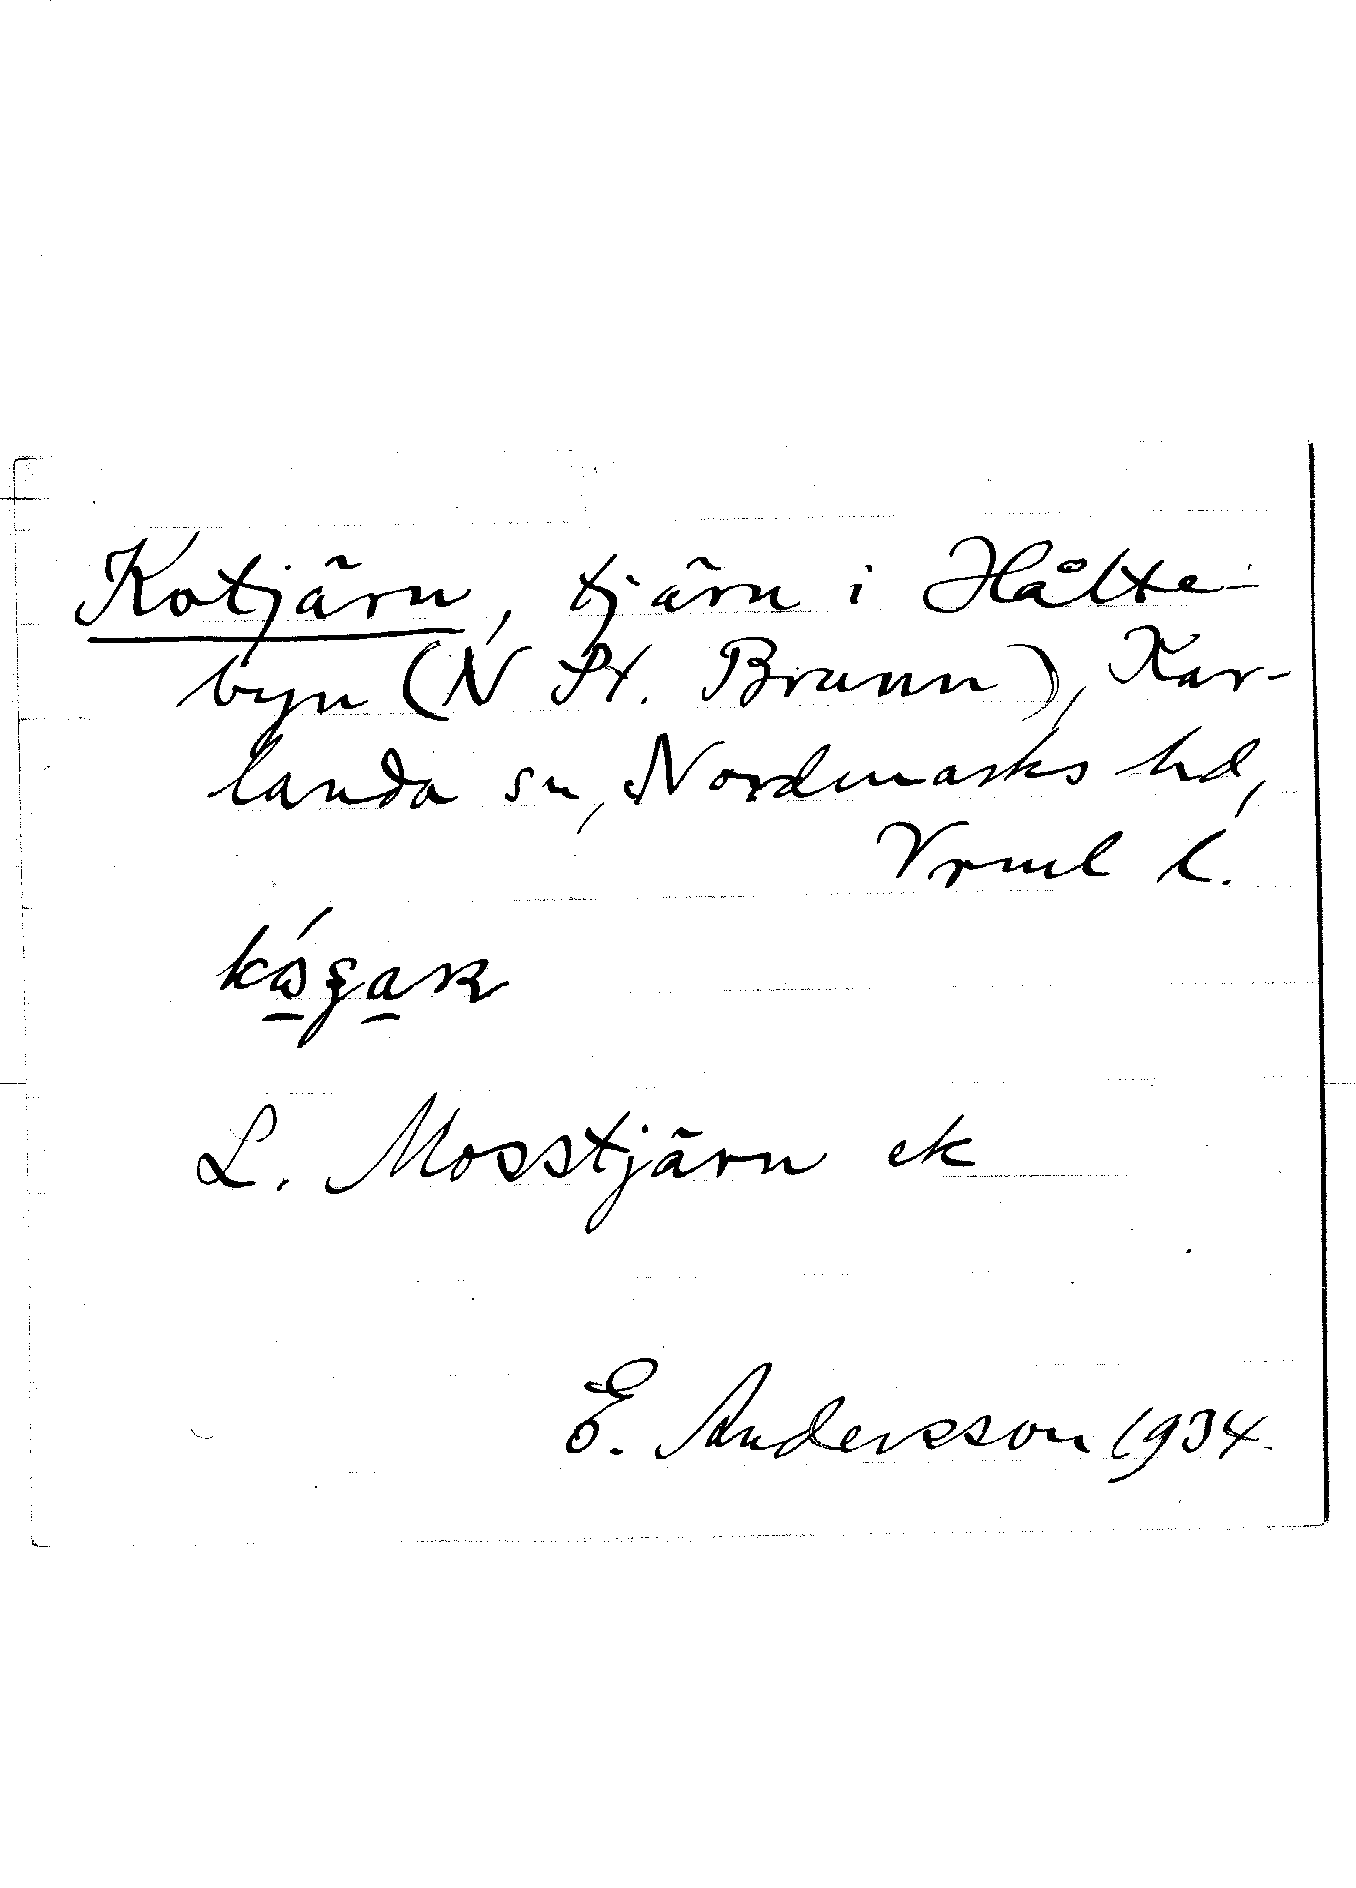 Kotjärn, tjärn i Hålte-
byn (N St. Brunn), Kar-
landa sn, Nordmarks hd,
Vrml l.
L. Mosstjärn ek
E. Andersson 1934